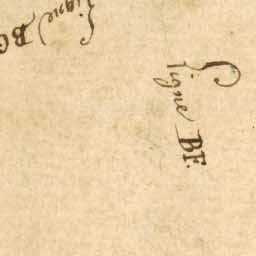 Ligne BC
Ligne BF.